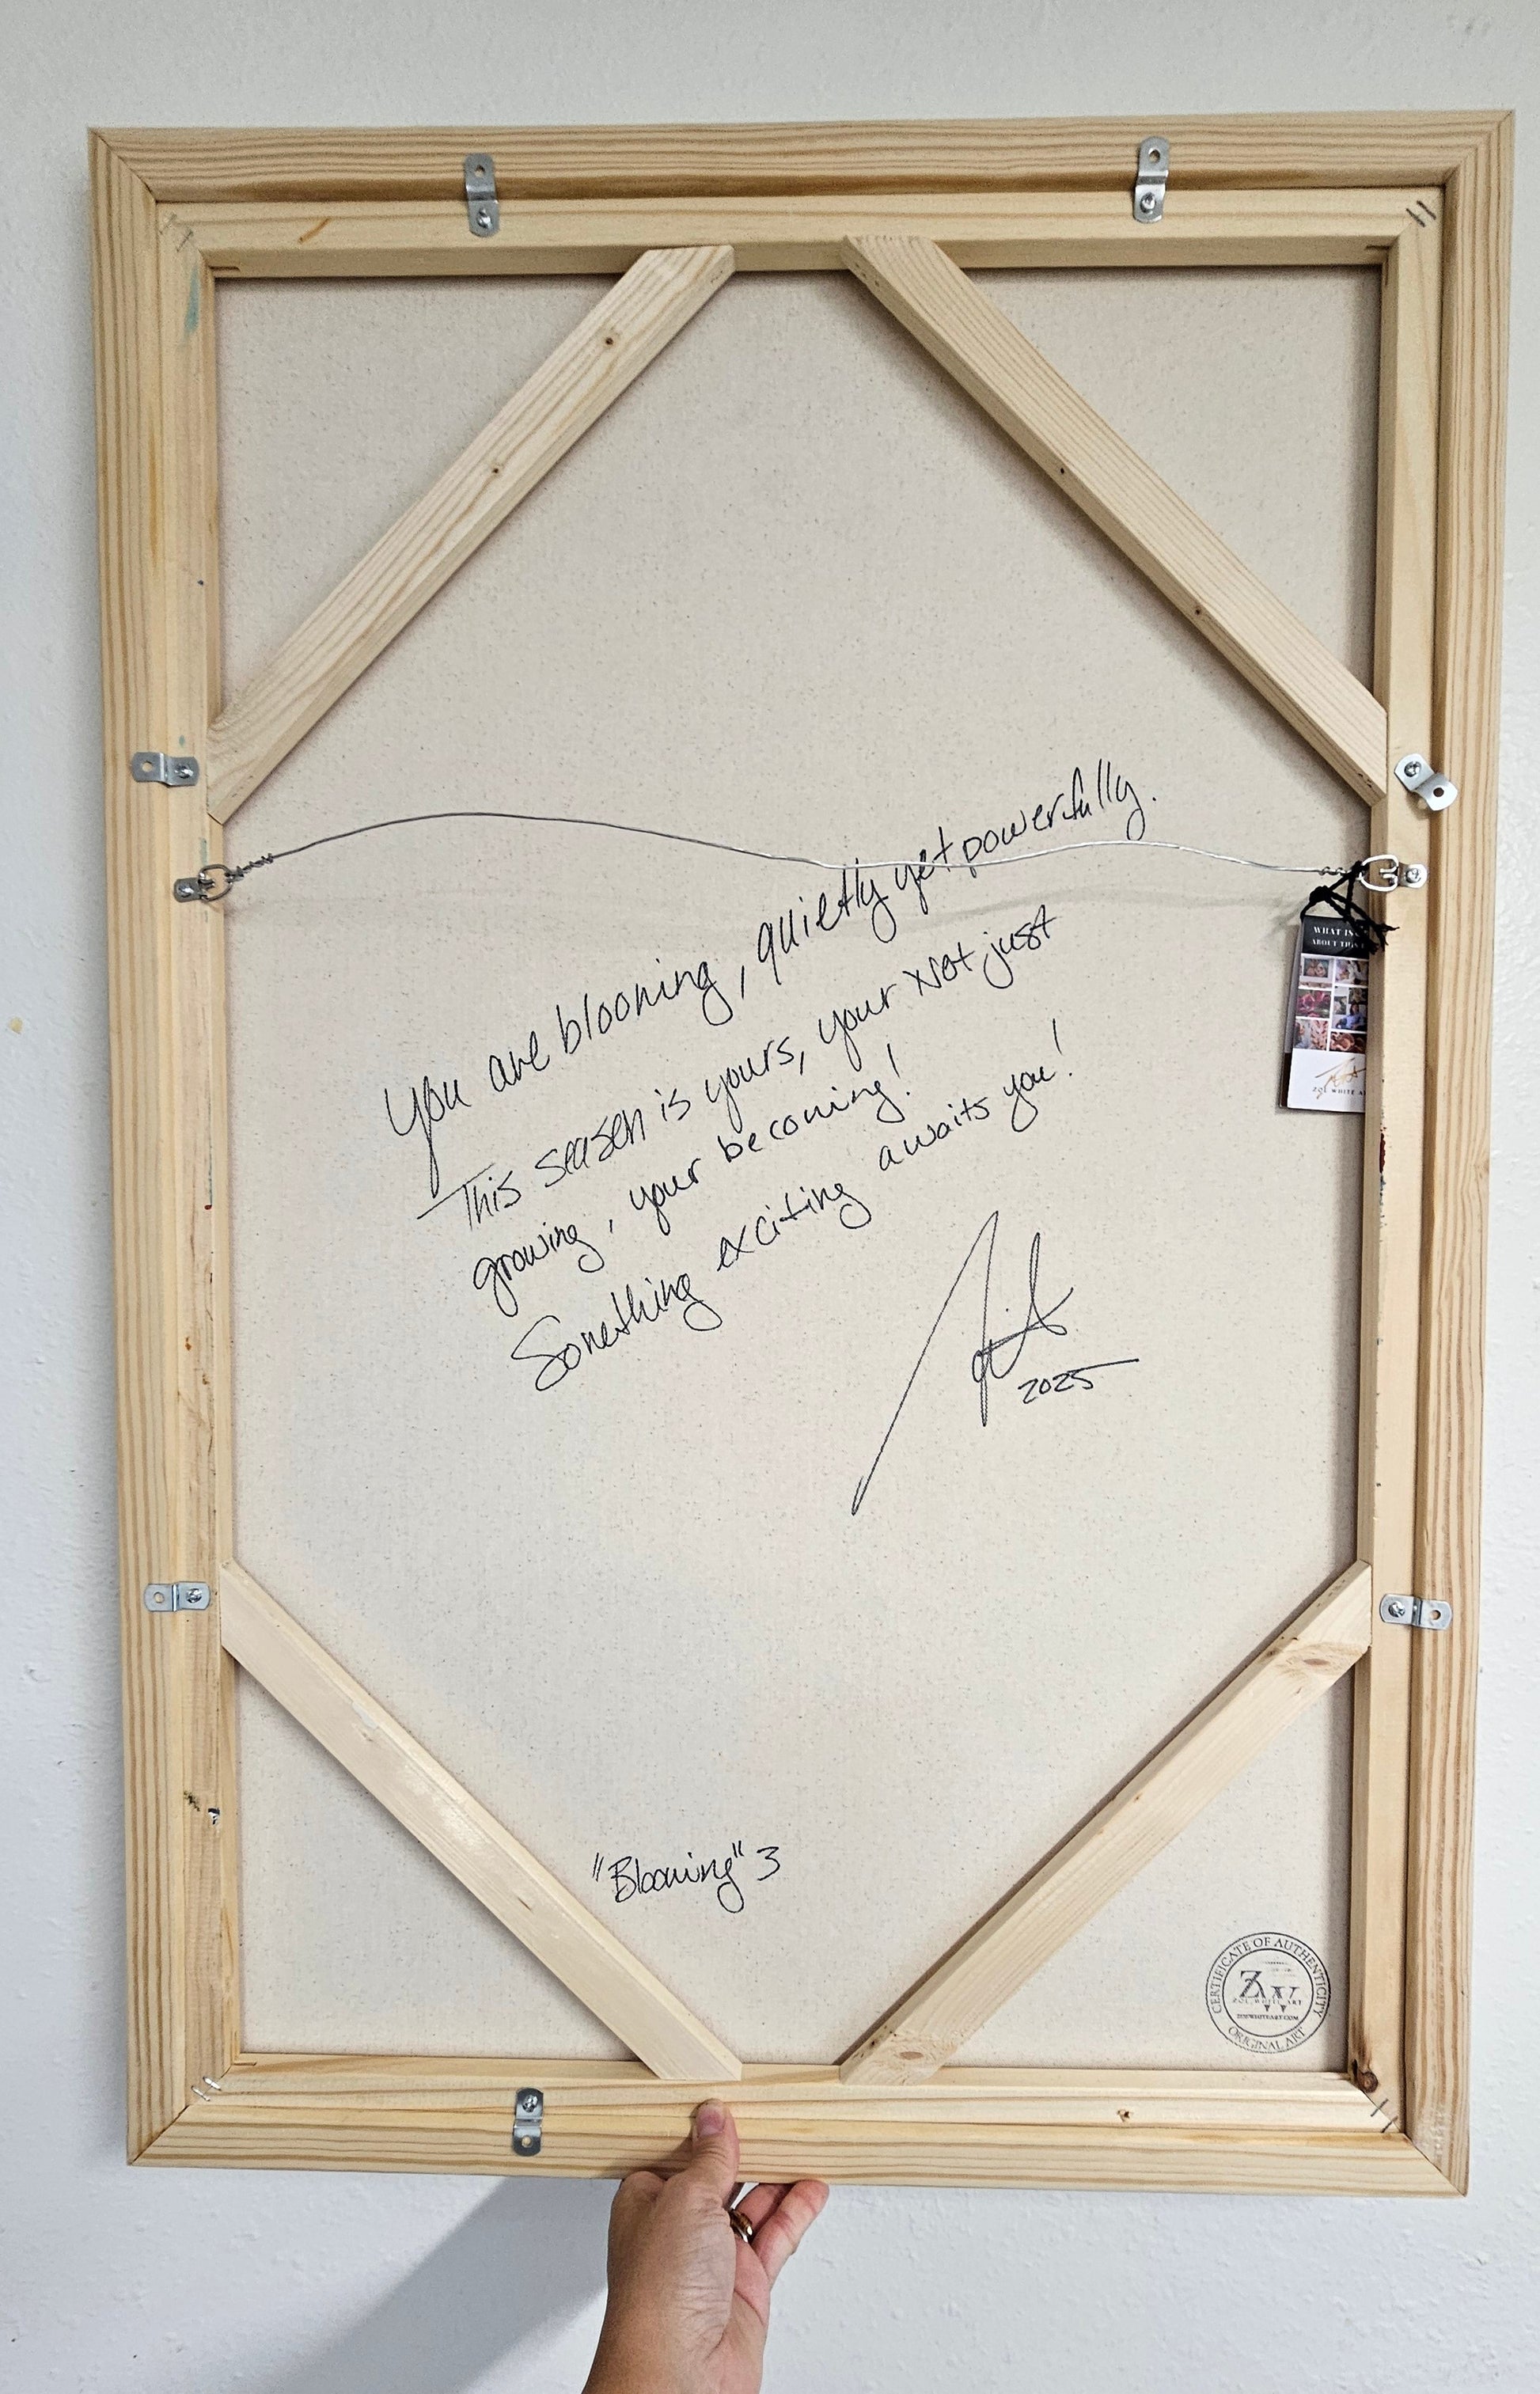 You are blooming, quietly yet powerfully.
This season is yours, your not just
growing, your becoming!
Something exciting awaits you!
2025
"Blooming" 3
WHAT IS
ABOUT TH
ZOE WHITE A
CERTIFICATE OF AUTHENTICITY
ZW
ZOE WHITE ART
ZOEWHITEART.COM
ORIGINAL ART